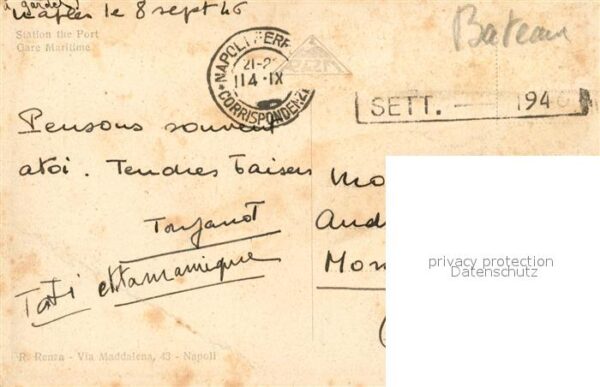 Naples le 8 sept 46
Station the Port
Gare Maritime
Bateau
NAPOLI FERR
21-2
14 · IX
CORRISPONDENZE
SETT. — 1946
Pensons souvent
à toi. Tendres baisers
Tati et Mamanique
R. Renza - Via Maddalena, 43 - Napoli
Mo
And
Mon
privacy protection
Datenschutz